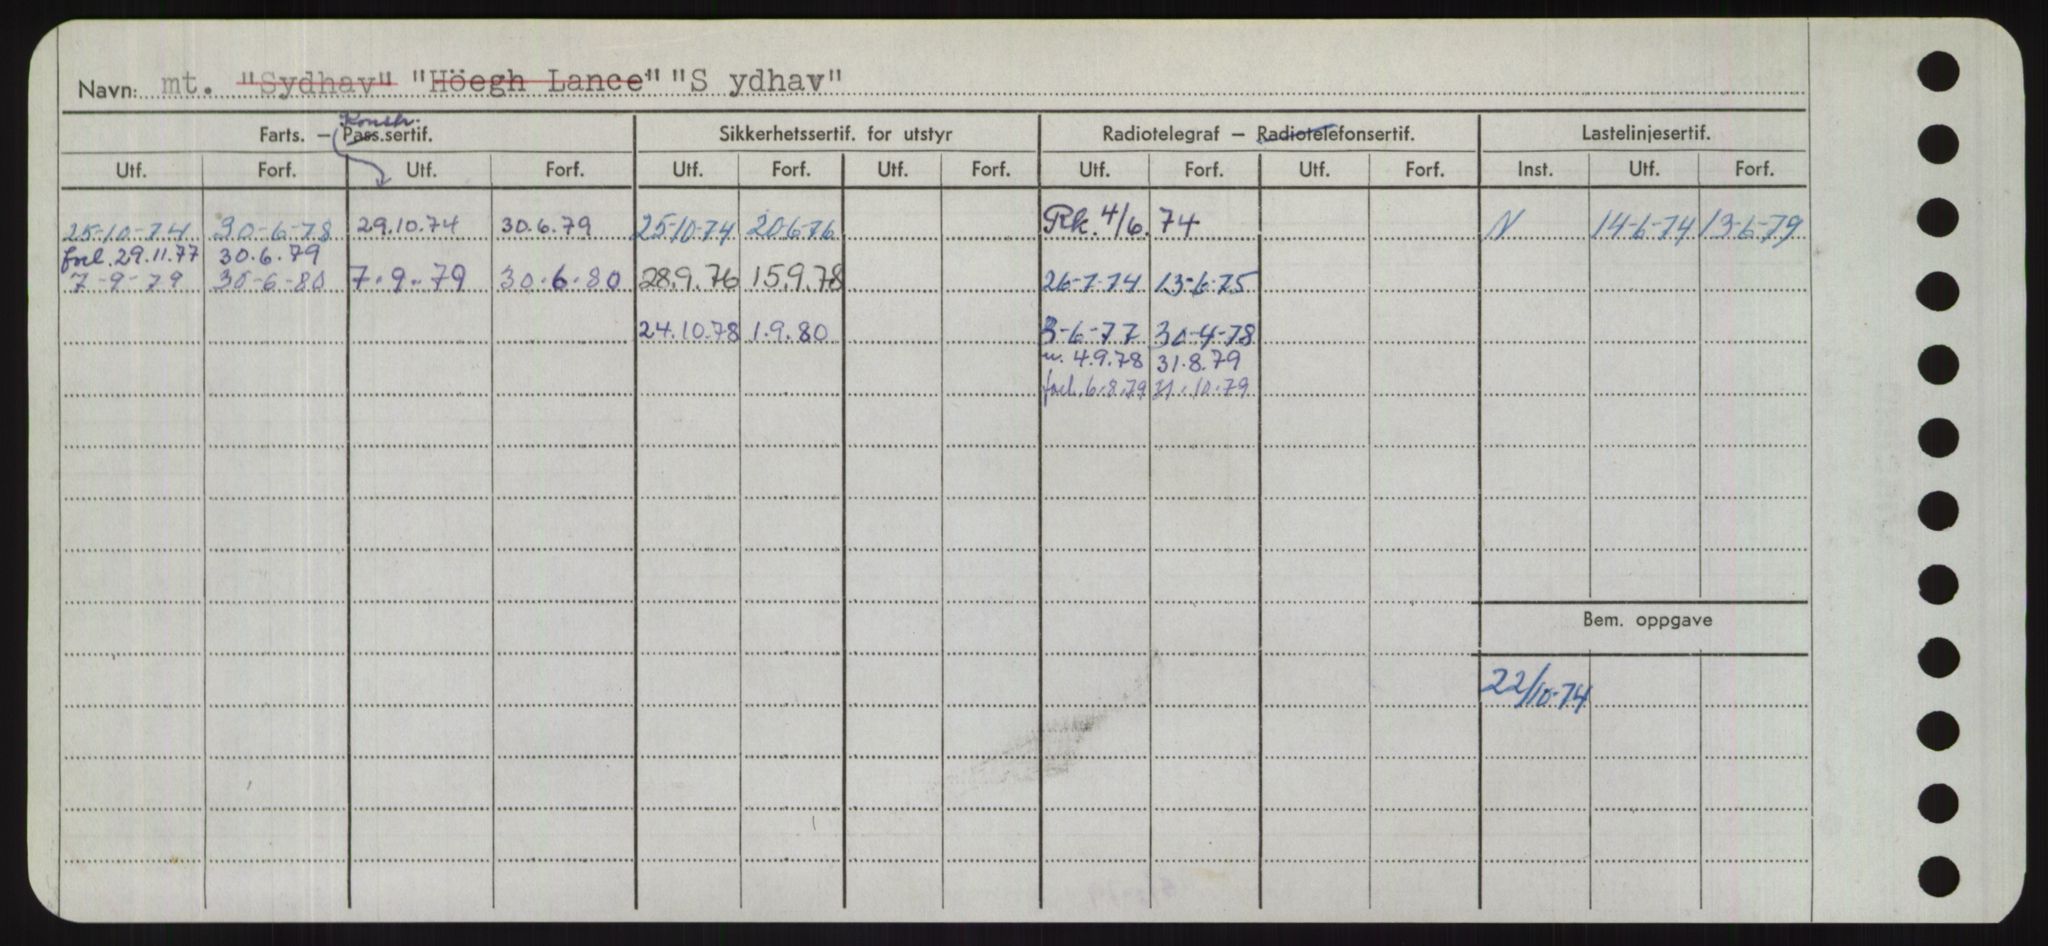 Navn: mt. "Sydhav" "Höegh Lance" "S ydhav"
Konstr.
Farts. — Pass.sertif. Sikkerhetssertif. for utstyr Radiotelegraf — Radiotelefonsertif. Lastelinjesertif.
Utf. Forf. Utf. Forf. Utf. Forf. Utf. Forf. Utf. Forf. Utf. Forf. Inst. Utf. Forf.
25-10-74 30-6-78 29.10.74 30.6.79 25-10-74 20-6-76 Rk. 4/6.74 N 14-6-74 13-6-79
forl. 29.11.77 30.6.79
7-9-79 30-6-80 7.9.79 30.6.80 28.9.76 15.9.78 26-7-74 13-6-75
24.10.78 1.9.80 3-6-77 30-4-78
u. 4.9.78 31.8.79
forl. 6.8.79 31.10.79
Bem. oppgave
22/10-74